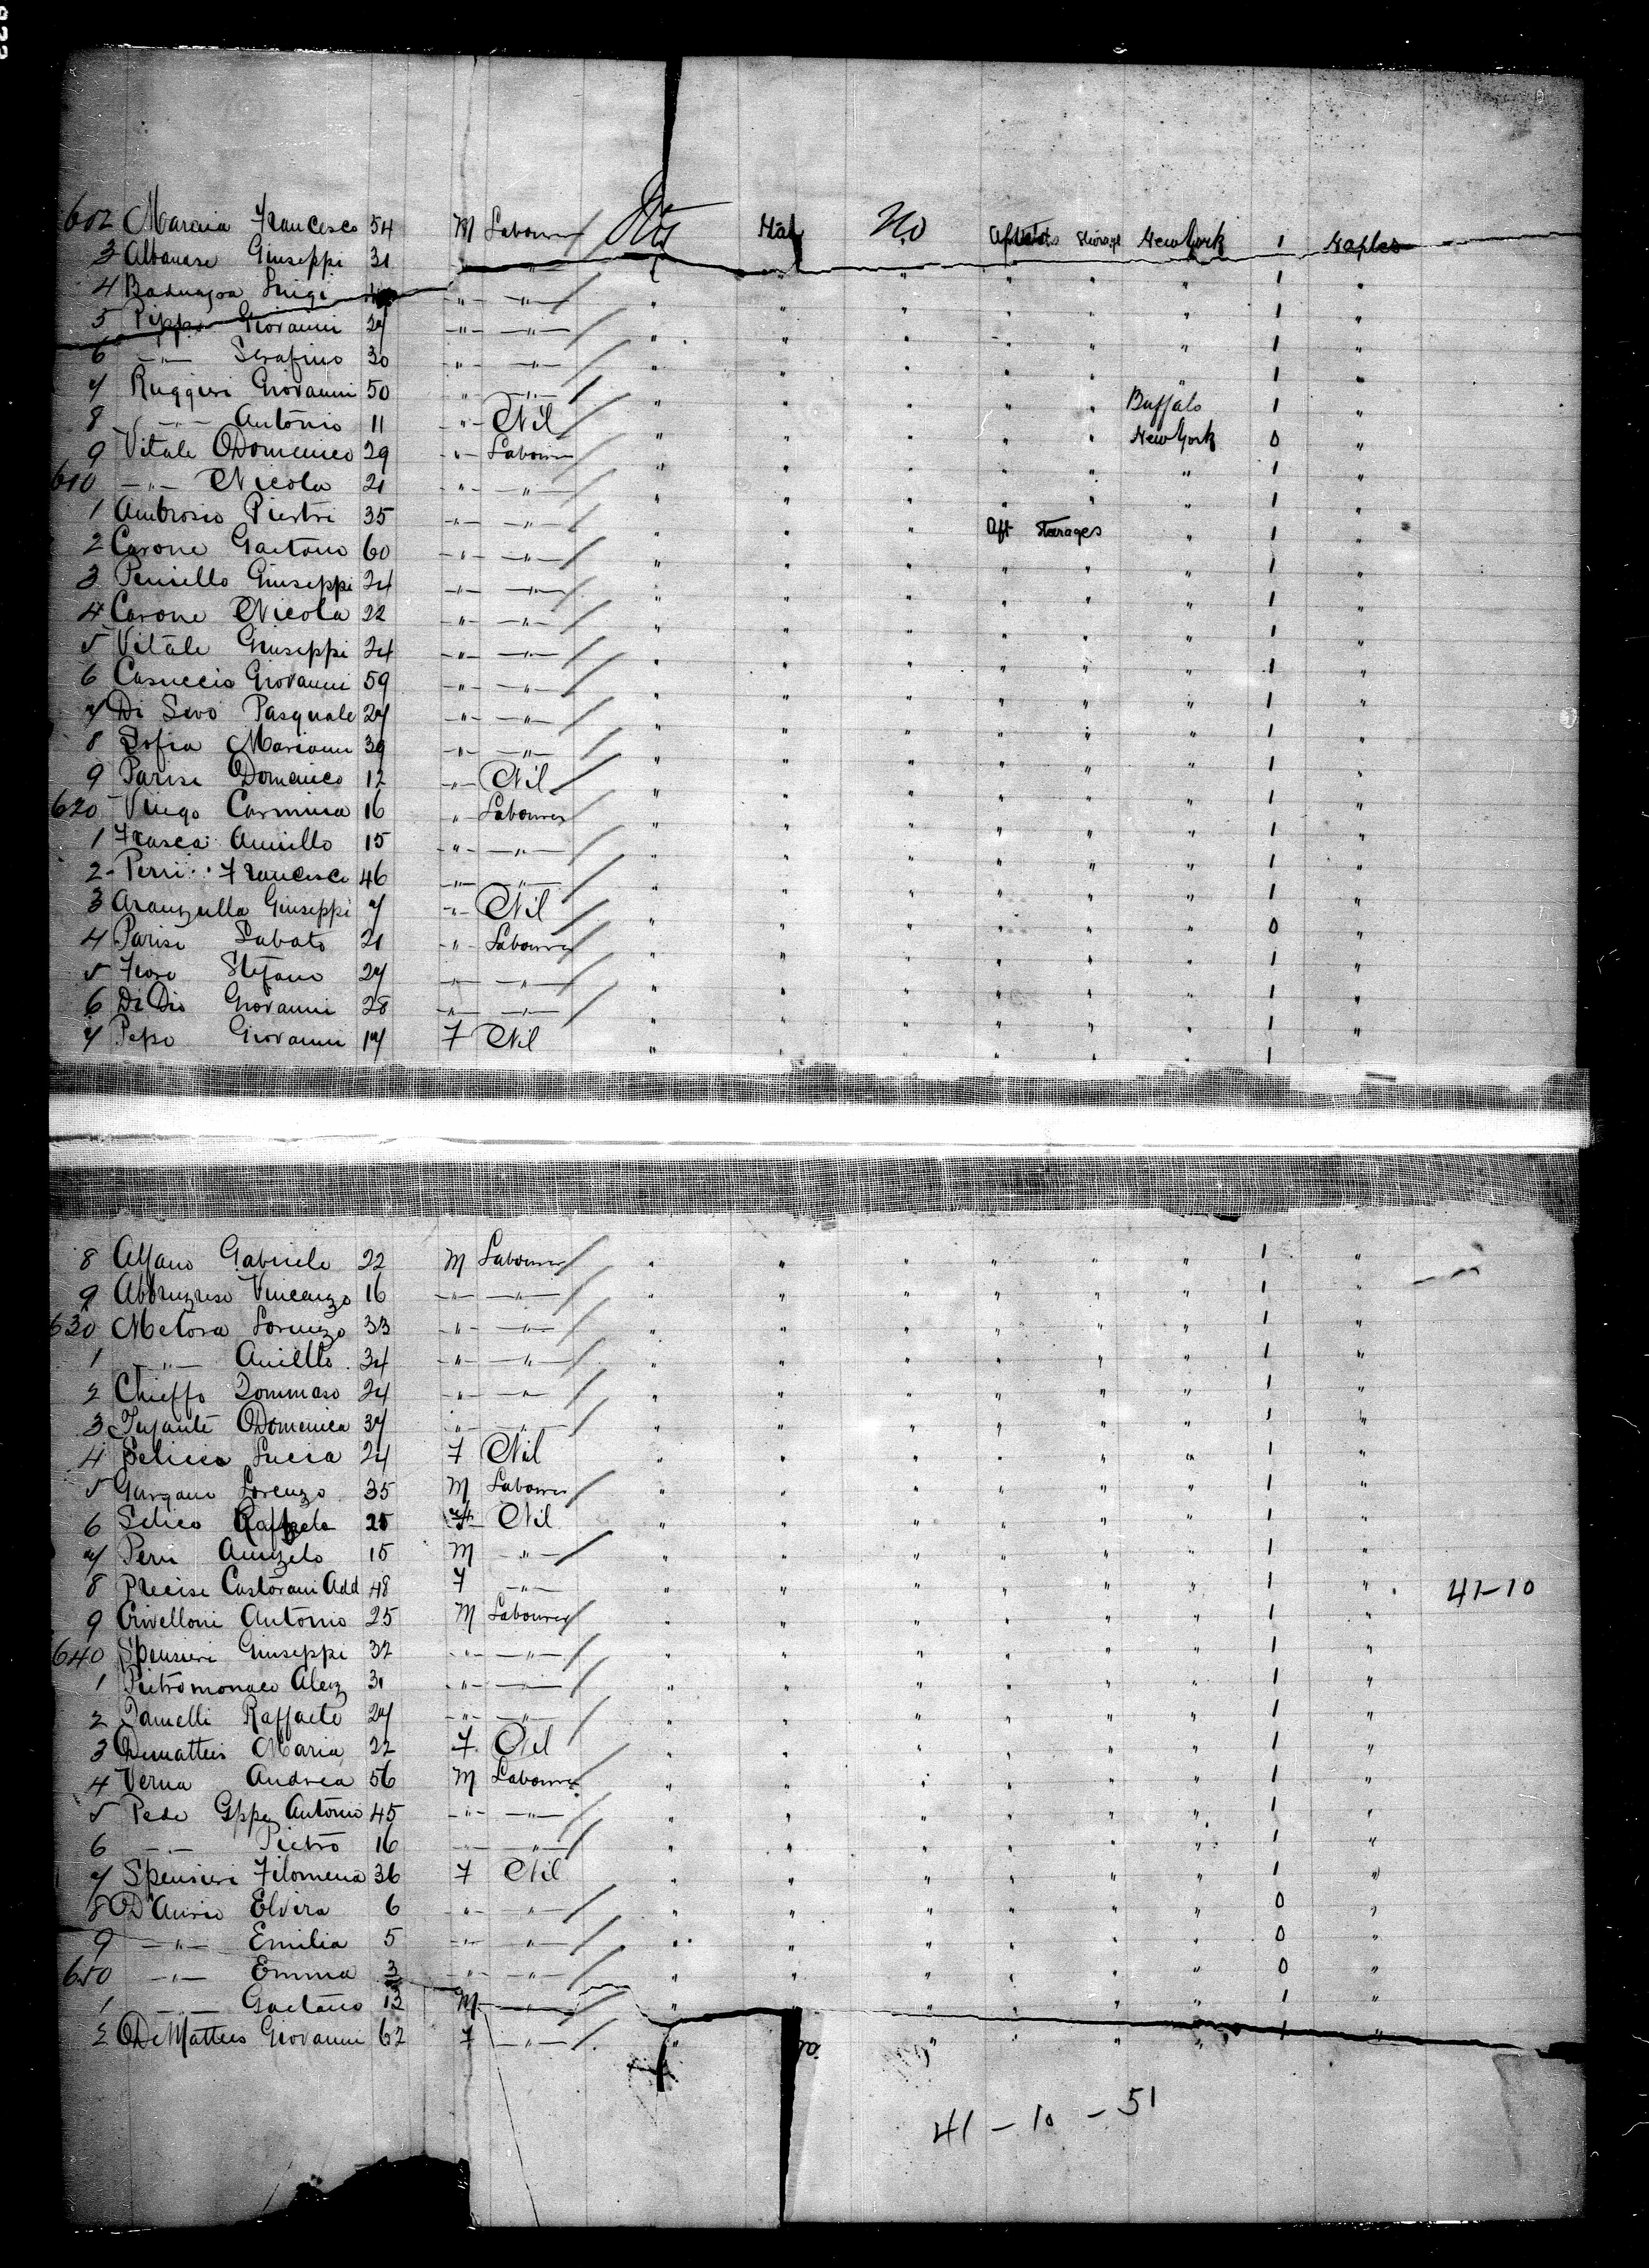 602 Francesco 54 M Labourer Italy No Steerage New York 1 Naples
3 Albanese Giuseppi 31 " " " " " " " 1 "
4 Luigi -"- -"- " " " " " " 1 "
5 Giovanni 27 -"- -"- " " " " " " 1 "
6 -"- Serafino 30 -"- -"- " " " " " " 1 "
7 Ruggieri Giovanni 50 " -"- " " " " " Buffalo 1 "
8 -"- Antonio 11 -"- Nil " " " " " New York 0 "
9 Vitale Domenico 29 -"- Labourer " " " " " " 1 "
610 -"- Nicola 21 -"- -"- " " " " " " 1 "
1 Ambrosio 35 -"- -"- " " " Aft Steerages " 1 "
2 Carone Gaetano 60 -"- -"- " " " " " " 1 "
3 Peniello Giuseppi 24 -"- -"- " " " " " " 1 "
4 Carone Nicola 22 -"- -"- " " " " " " 1 "
5 Vitale Giuseppi 24 -"- -"- " " " " " " 1 "
6 Casuccio Giovanni 59 -"- -"- " " " " " " 1 "
7 Di Sevo Pasquale 27 -"- -"- " " " " " " 1 "
8 Sofia 39 -"- -"- " " " " " " 1 "
9 Parisi Domenico 12 -"- Nil " " " " " " 1 "
620 Carmina 16 -"- Labourer " " " " " " 1 "
1 Frasca Aniello 15 -"- -"- " " " " " " 1 "
2 Perri Francesco 46 -"- -"- " " " " " " 1 "
3 Aranzulla Giuseppi 7 -"- Nil " " " " " " 0 "
4 Parisi Sabato 21 -"- Labourer " " " " " " 1 "
5 Fiore Stefano 27 -"- -"- " " " " " " 1 "
6 Di Dio Giovanni 28 -"- -"- " " " " " " 1 "
7 Pepe Giovanni 17 F Nil " " " " " " 1
8 Alfano Gabriele 22 M Labourer " " " " " " 1 "
9 Abbruzzese Vincenzo 16 -"- -"- " " " " " " 1 "
630 Lorenzo 33 -"- -"- " " " " " " 1 "
1 -"- Aniello 34 -"- -"- " " " " " " 1 "
2 Chieffo Tommaso 24 -"- -"- " " " " " " 1 "
3 Infante Domenica 37 -"- -"- " " " " " " 1 "
4 Lucia 24 F Nil " " " " " " 1 "
5 Gargano Lorenzo 35 M Labourer " " " " " " 1 "
6 Raffaela F Nil " " " " " " 1 "
7 15 M -"- " " " " " " 1 "
8 Precisi Castorani Add 48 F -"- " " " " " " 1 " 41-10
9 Crivelloni Antonio 25 M Labourer " " " " " " 1 "
640 Spensieri Giuseppi 32 -"- -"- " " " " " " 1 "
1 Pietromonaco 31 -"- -"- " " " " " " 1 "
2 Raffaele 27 -"- -"- " " " " " " 1 "
3 Dematteis Maria 22 F Nil " " " " " " 1 "
4 Verna Andrea 56 M Labourer " " " " " " 1 "
5 Pede Gppe Antonio 45 -"- -"- " " " " " " 1 "
6 -"- Pietro 16 -"- -"- " " " " " " 1 "
7 Spensieri Filomena 36 F Nil " " " " " " 1 "
8 Elvira 6 -"- -"- " " " " " " 0 "
9 -"- Emilia 5 -"- -"- " " " " " " 0 "
650 -"- Emma 3 -"- -"- " " " " " " 0 "
1 -"- Gaetano 13 M -"- " " " " " " 1 "
2 DeMatteis Giovanni 62 F -"- " " " " " 1 "
41 - 10 - 51